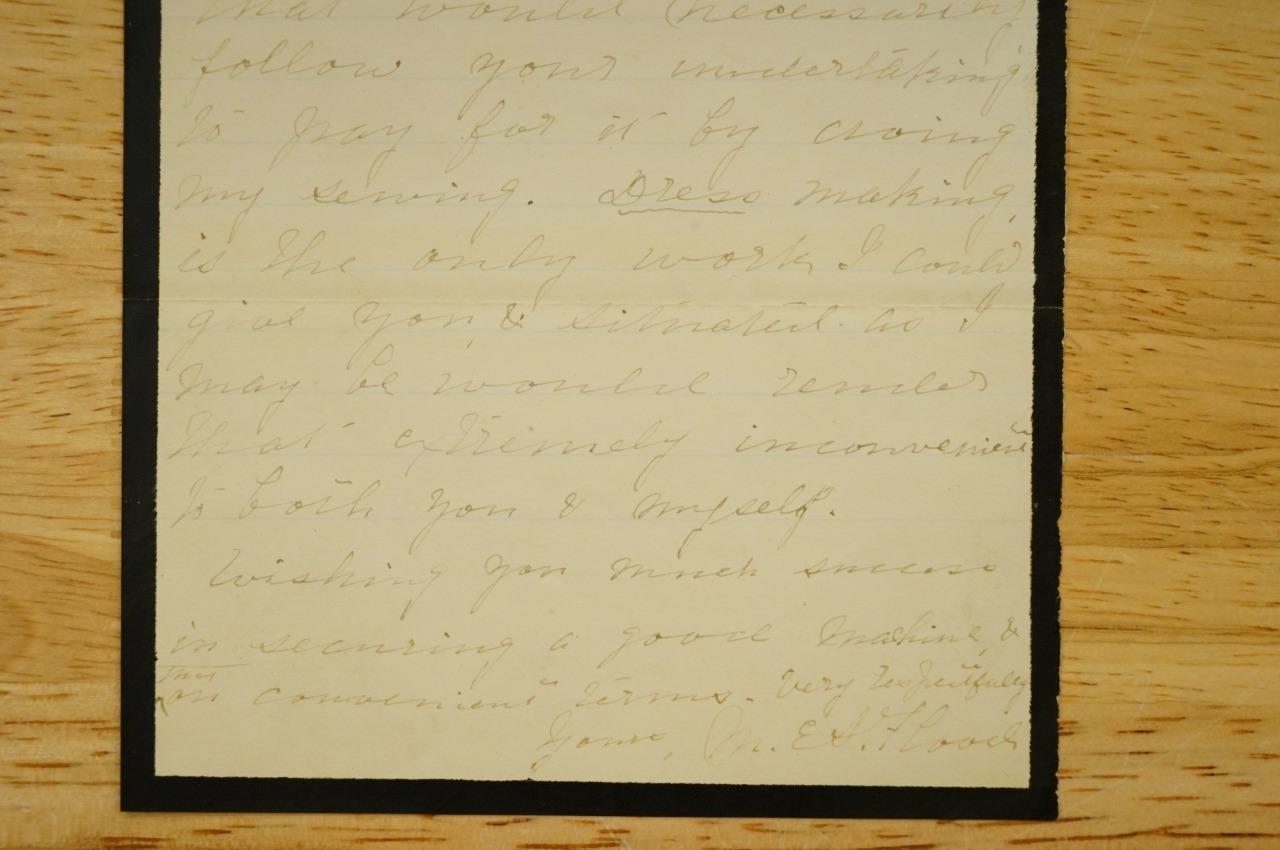 that would necessarily
follow your undertaking
to pay for it by doing
my sewing. Dress making,
is the only work I could
give you, & situated as I
may be would render
that extremely inconvenient
to both you & myself.
Wishing you much success
in securing a good Machine, &
on convenient terms. Very respectfully
Yours, M. E. S. Flood